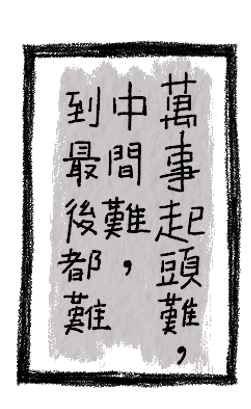 萬事起頭難，
中間難，
到最後都難